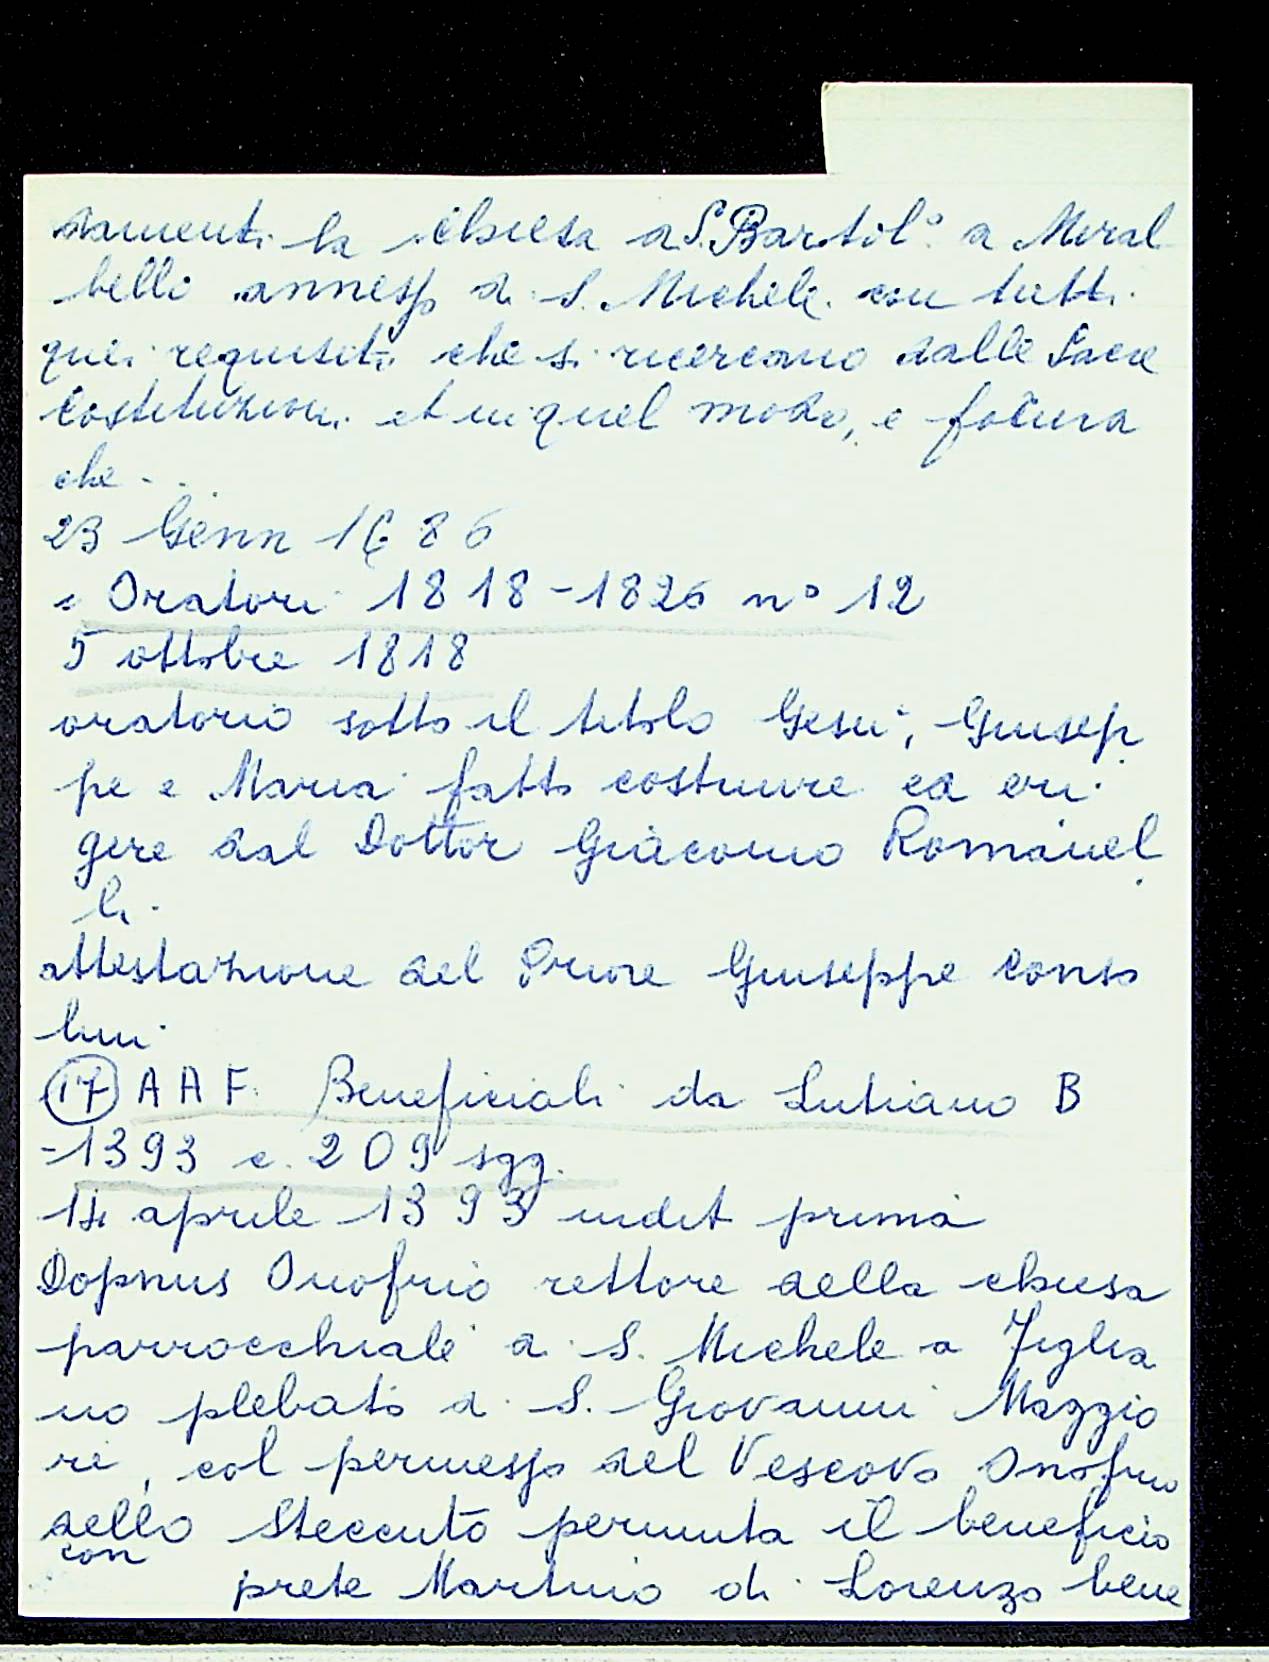 damenti la chiesa a S. Bartol° a Miral
belli annessa a S. Michele. con tutti
quei requisiti che si ricercano dalle Sacre
Costituzioni et in quel modo, e
che . .
23 Genn 1686
Oratori 1818-1826 n° 12
5 ottobre 1818
oratorio sotto il titolo Gesù, Giusep
pe e Maria fatto costruire ed eri
gere dal Dottor Giacomo Romanel
li.
attestazione del Priore Giuseppe Conso
lini
(17) A A F. Beneficiali da Lutiano B
-1393 c. 209 sgg.
14 aprile 1393 indit prima
Dopnus Onofrio rettore della chiesa
parrocchiale di S. Michele a Figlia
no plebato di S. Giovanni Maggio
re, col permesso del Vescovo Onofrio
dello Steccuto permuta il beneficio
con
prete Martino di Lorenzo bene